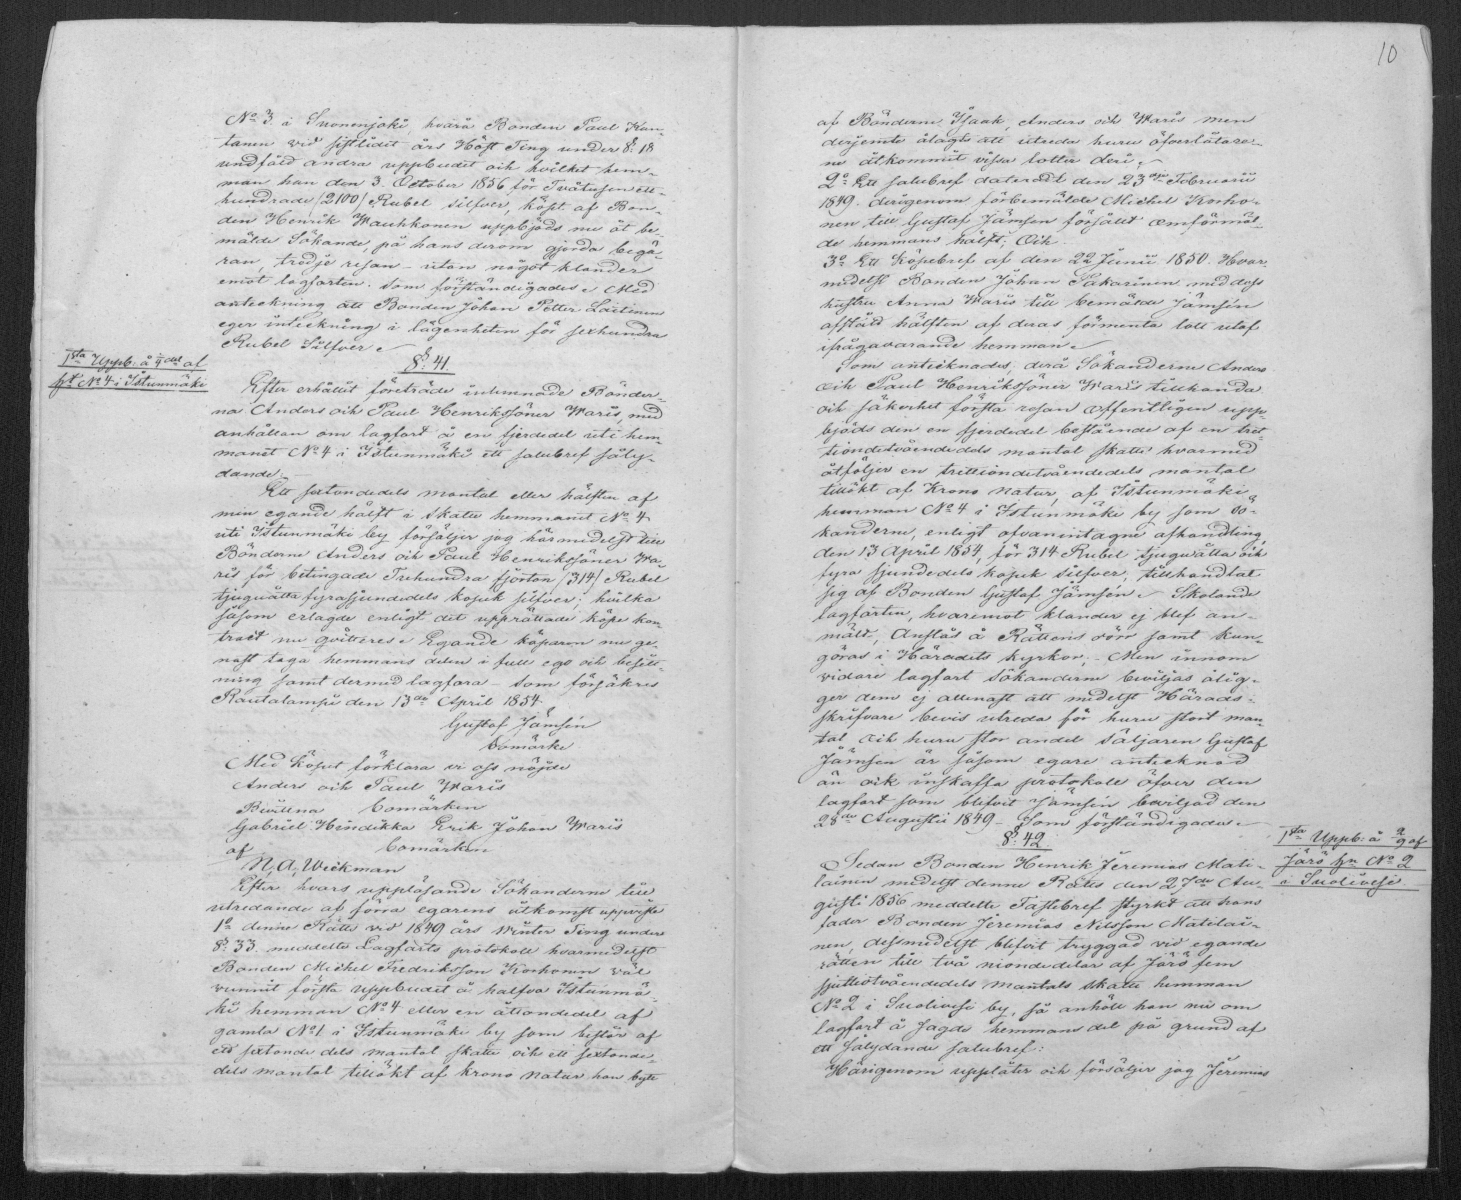 No 3 i Suonenjoki, hvarå Bonden Paul Kau-
tanen vid sistlidet års Höst Ting under §: 18
undfåed andra uppbudet och hvilket hem-
man han den 3 October 1856 för Tvåtusen ett-
hundrade /2100/ Rubel silfver, köpt af Bon-
den Henrik Wauhkonen uppbjöds nu åt be-
mälde Sökande, på hans derom gjorda begä-
ran, tredje resan – utan något klander
emot lagfarten. Som förständigades Med
anteckning att Bonden Johan Petter Laitinen
eger inteckning i lägenheten för sexhundra
Rubel Silfver
§: 41.
1sta Uppb: å ¼ del af
hn No 4 i Istunmäki
Efter erhållit företräde inlemnade Bönder-
na Anders och Paul Henrikssöner Waris, med
anhållan om lagfart å en fjerdedel uti hem-
manet No 4 i Istunmäki ett salubref såly-
dande.
Ett sextondedels mantal eller hälften af
min egande hälft i skatte hemmanet No 4
uti Istunmäki by försäljer jag härmedelst till
Bönderne Anders och Paul Henrikssöner Wa-
ris för betingade Trehundra fjorton /314/ Rubel
tjuguåtta fyrasjundedels kopek silfver; hvilka
såsom erlagde enligt det upprättade köpe kon-
tract nu qvitteres Egande köparen nu ge-
nast taga hemmans delen i full ego och besitt-
ning samt dermed lagfara – som försäkres
Rautalampi den 13de April 1854.
Gustaf Jämsén
bomärke
Med köpet förklara vi oss nöjde
Anders och Paul Waris
Bevittna bomärken
Gabriel Hendikka Erik Johan Waris
bomärken
af
N. A. Weckman
Efter hvars uppläsande Sökanderne till
utredande af förra egarens åtkomst uppviste
1o denne Rätts vid 1849 års Winter Ting under
§: 33. meddelte Lagfarts protokoll hvarmedelst
Bonden Michel Fredriksson Korhonen väl
vunnit första uppbudet å halfva Istunmä-
ki hemman No 4 eller en åttondedel af
gamla No 1 i Istunmäki by som består af
ett sextonde dels mantal skatte och ett sextonde-
dels mantal tillökt af krono natur han bytt
10
af Bönderne Isaak, Anders och Waris men
derjemte ålagts att utreda huru öfverlåtare-
ne åtkommit vissa lotter deri;
2o Ett salubref dateradt den 23dje Februarii
1849. derigenom förbemälde Michel Korho-
nen till Gustaf Jämsén försåldt omförmäl-
de hemmans hälft; Och
3o Ett Köpebref af den 22 Junii 1850. Hvar-
medelst Bonden Johan Sakarinen med dess
hustru Anna Waris till bemälde Jämsén
afståd hälften af deras förmenta lott utaf
ifrågavarande hemman
Som antecknades, derå Sökanderne Anders
och Paul Henrikssöner Waris tillhanda
och säkerhet första resan offentligen upp-
bjöds den en fjerdedel bestående af en tret-
tiondetvåendedels mantal skatte hvarmed
åtföljer en trettiondetvåendedels mantal
tillökt af Krono natur, af Istunmäki
hemman No 4 i Istunmäki by som sö-
kanderne, enligt ofvanintagne afhandling
den 13 April 1854, för 314 Rubel tjuguåtta och
fyra sjundedels kopek silfver, tillhandlat
sig af Bonden Gustaf Jämsén Skolande
lagfarten, hvaremot klander ej blef an-
mäld, Anslås å Rättens dörr samt kun-
göras i Häradets kyrkor, – Men innom
vidare lagfart sökanderne beviljas ålig-
ger dem ej allenast att medelst Härads-
skrifvare bevis utreda för huru stort man-
tal och huru stor andel säljaren Gustaf
Jämsen är såsom egare antecknad
än ock inskaffa protokoll öfver den
lagfart som blifvit Jämsén beviljad den
28de Augustii 1849 – Som förständigades
§: 42.
1sta Uppb: å 2/9 af
Järö hn No 2
i Suolivesi
Sedan Bonden Henrik Jeremias Mati-
lainen medelst denne Rätts den 27de Au-
gusti 1856 meddelte Fastebref styrkt att hans
fader Bonden Jeremias Nilsson Matilai-
nen, dessmedelst blifvit tryggad vid egande
rätten till två niondedelar af Järö fem
sjuttiotvåendedels mantals skatte hemman
No 2 i Suolivesi by, så anhöll han nu om
lagfart å sagde hemmans del på grund af
ett sålydande salubref:
Härigenom upplåter och försäljer jag Jeremias